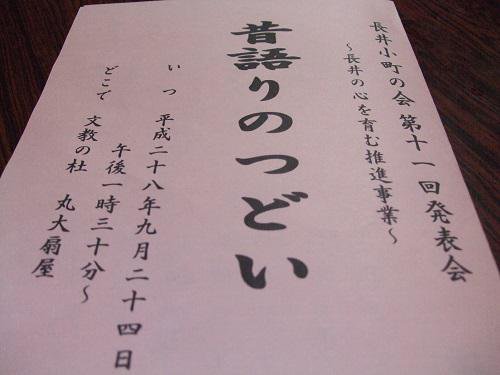 長井小町の会 第十一回発表会
～長井の心を育む推進事業～
昔語りのつどい
いつ 平成二十八年九月二十四日
午後一時三十分～
どこで 文教の杜 丸大扇屋